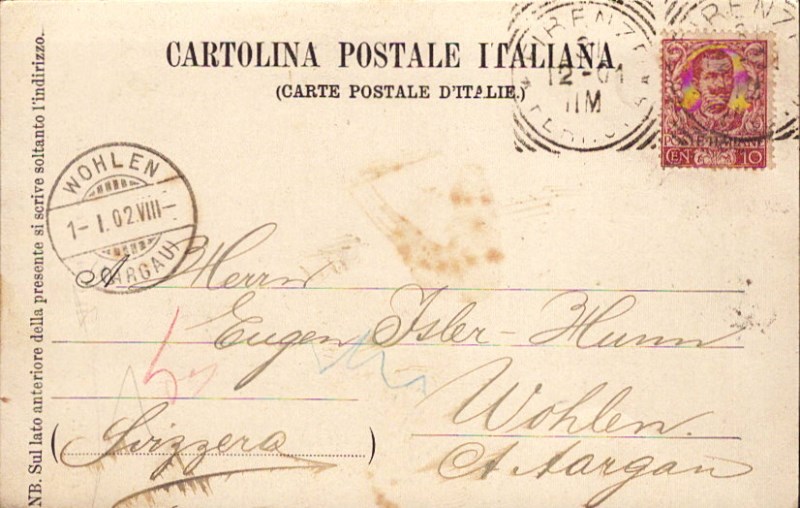 CARTOLINA POSTALE ITALIANA
(CARTE POSTALE D'ITALIE.)
FIRENZE
12-01
11M
FERROVIA
FIRENZE
POSTE ITALIANE
CEN 10
WOHLEN
1-I.02.VIII-
(AARGAU)
A Herrn
Eugen Isler-Hunn
Wohlen.
Ct. Aargau
(Svizzera)
NB. Sul lato anteriore della presente si scrive soltanto l'indirizzo.